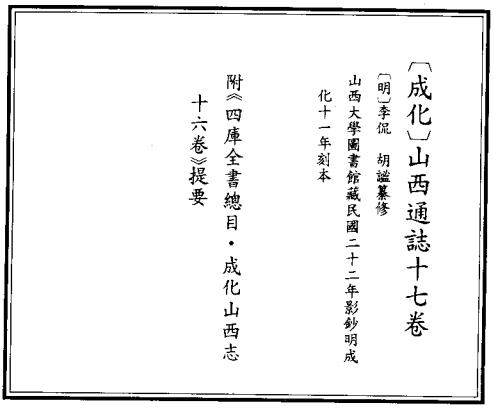 〔成化〕山西通誌十七卷
〔明〕李侃　胡謐纂修
山西大學圖書館藏民國二十二年影鈔明成
化十一年刻本
附《四庫全書總目·成化山西志
十六卷》提要